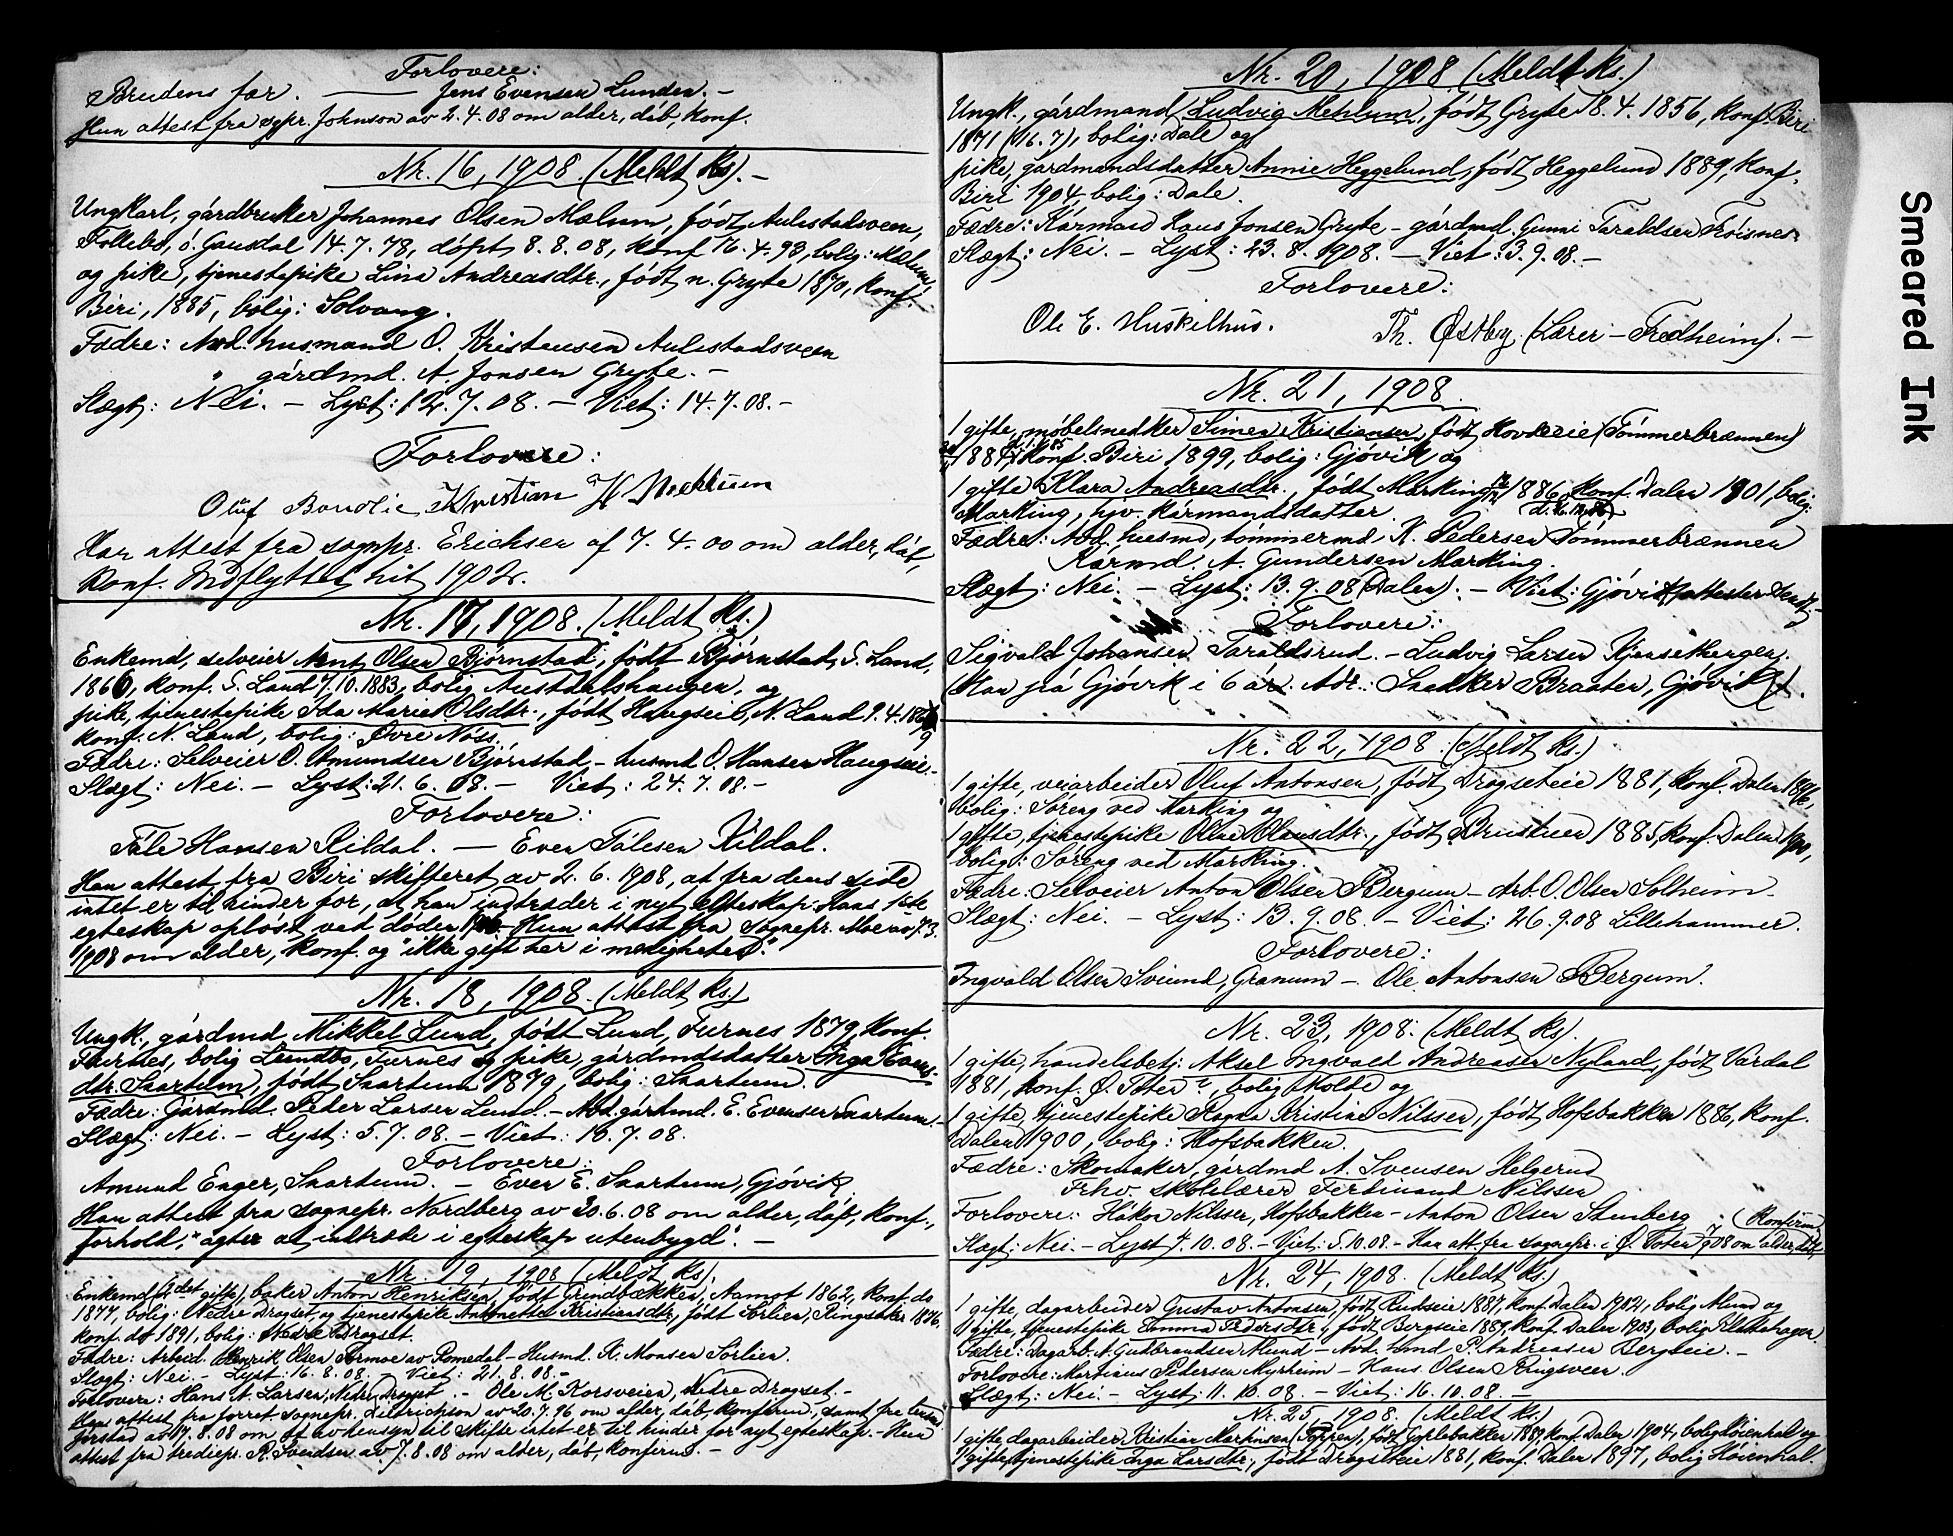 Forlovere:
Brudens far. — Jens Evensen Lunden. –
Hun attest fra sgpr. Johnson av 2.4.08 om alder, dåb, konf.
Nr. 16, 1908. (Meldt ks). –
Ungkarl, gårdbruker Johannes Olsen Mælum, født Aulestadsveen,
Follebo, ö. Gausdal 14.7.78, döpt 8.8.08, konf 16.4.93, bolig: Mælum,
og pike, tjenestepike Lina Andreasdtr., født n. Gryte 1870, konf.
Biri, 1885, bolig: Solvang.
Fædre: Avd. husmand O. Kristensen Aulestadsveen
" gårdmd. A. Jonsen Gryte. –
Slegt: Nei. – Lyst: 12.7.08. – Viet: 14.7.08. –
Forlovere:
Oluf Bondlie Kristian H Mæhlum
Han attest fra sognpr. Erichsen af 7.4.00 om alder, dåb,
konf. Indflyttet hit 1902.
Nr. 17, 1908. (Meldt ks.)
Enkemd, selveier Arnt Olsen Björnstad, født Björnstad, S. Land,
1866, konf. S. Land 7.10.1883, bolig Austdalshaugen, og
pike, tjenestepike Ida Marie Olsdtr., født Haugseie, N. Land 9.4.
konf. N. Land, bolig: Övre Nöss.
Fædre: Selveier O. Amundsen Björnstad – husmd O. Hansen Haugseie. –
Slægt: Nei. – Lyst: 21.6.08. – Viet: 24.7.08. –
Forlovere:
Tåle Hansen Kildal. — Even Tålesen Kildal.
Han attest fra Biri skifteret av 2.6.1908, at fra dens side
intet er til hinder for, at han indtræder i nyt egteskap. Hans 1ste
egteskap oplöst ved döden – Hun attest fra sognepr. Moe av 7.3.
1908 om alder, konf. og "ikke gift her i menigheten."
Nr. 18, 1908. (Meldt ks.)
Ungk., gårdmd Mikkel Lund, født Lund, Furnes 1879, konf.
Furnes, bolig Lundbo, Furnes og pike, gårdmdsdatter Inga Evens-
dtr. Snartum, født Snartum 1879, bolig: Snartum.
Fædre: Gårdmd. Peder Larsen Lund. – Avd. gårdmd. E. Evensen Snartum. –
Slægt: Nei. – Lyst: 5.7.08. – Viet: 10.7.08.
Forlovere:
Amund Enger, Snartum. – Even E. Snartum, Gjövik
Han attest fra sognepr. Nordberg av 30.6.08 om alder, dåp, konf.,
forhold, "agter at indtræde i egteskap utenbygd". –
Nr. 19, 1908 (Meldt ks).
Enkemd (2det gifte), baker Anton Henriksen, født Grundbækken, Aamot 1862, konf. do
1877, bolig: Nedre Dragset, og tjenestepike Antonette Kristiansdtr, født Sörlien, Ringsaker 1876,
konf. do 1891, bolig: Nedre Dragset.
Fædre: Arbeid. Henrik Olsen av Romedal – Husmd. K. Monsen Sörlien.
Slegt: Nei. – Lyst: 16.8.08. – Viet: 21.8.08. –
Forlovere: Hans A. Larsen, Nedre Dragset. – Ole M. Korsveien, Nedre Dragset. –
Han attest fra forret. sognepr. Diedrichson av 20.7.96 om alder, dåb, konferm., samt fra
av 17.8.08 om at av hensyn til skifte intet er til hinder for nyt egteskap. – Hun
attest fra R. Svendsen av 7.8.08 om alder, dåb, konferm. –
Nr. 20, 1908. (Meldt ks.)
Ungk., gårdmand Ludvig Mehlum, født Gryte 18.4.1856, konf. Biri
1871 (16.7), bolig: Dale og
pike, gårdmandsdatter Annie Heggelund, født Heggelund 1889, konf.
Biri 1904, bolig: Dale.
Fædre: Kårmand Hans Jonsen Gryte – gårdmd. Gunni Taraldsen Fröisnes
Slægt: Nei. – Lyst: 23.8.1908. – Viet: 3.9.08. –
Forlovere:
Ole E. Huskelhus. Th. Østby (Lærer – Fredheim). –
Nr. 21, 1908.
1 gifte, möbelsnedker Simen Kristiansen, født Hovdeeie (Tömmerbrænnen)
1884, konf. Biri 1899, bolig: Gjövik og
1 gifte Klara Andreasdtr., født Marking 1886, konf. Dalen 1901, bolig:
Marking, hjv. kårmandsdatter.
Fædre: Avd. husmd, tömmermd K. Pedersen Tömmerbrænnen
Kårmd. A. Gundersen Marking.
Slægt: Nei. – Lyst: 13.9.08 (Dalen). – Viet: Gjövik (attester sendt –
Forlovere:
Sigvald Johansen Taraldsrud. – Ludvig Larsen Kjensetbergen.
(Han frå Gjövik i 6 år. Adr.: Snedker Braaten, Gjövik).
Nr. 22, 1908. (Meldt ks.)
1 gifte, veiarbeider Oluf Antonsen, født Dragseteie 1881, konf. Dalen 1896,
bolig: Söreng ved Marking og
1 gifte, tjenestepike Oline Olausdtr., født Brustuen 1885, konf. Dalen 1900,
bolig: Söreng ved Marking.
Fædre: Selveier Anton Olsen Bergum – arb. O. Olsen Solheim –
Slægt: Nei. – Lyst: 13.9.08 – Viet: 26.9.08 Lillehammer.
Forlovere:
Ingvald Olsen Sviund, Granum – Ole Antonsen Bergum.
Nr. 23, 1908. (Meldt ks).
1 gifte, handelsbetj. Aksel Ingvald Andreasen Nyland, født Vardal
1881, konf. Ö. Toten?, bolig Molde og
1 gifte, tjenestepike Ragna Kristine Nilssen, født Hofsbakken 1886, konf.
Dalen 1900, bolig: Hofsbakken.
Fædre: Skomaker, gårdmd A. Svensen Helgerud
Frhv. skolelærer Ferdinand Nilssen
Forlovere: Håkon Nilssen, Hofsbakken – Anton Olsen Stenberg (konferm
Slegt: Nei. – Lyst 4.10.08 – Viet: 5.10.08 – Han att. fra sognepr. i Ö. Toten 7/9 08 om alder, dåb,
Nr. 24, 1908. (Meldt ks.)
1 gifte, dagarbeider Gustav Antonsen, født Rudseie 1887, konf. Dalen 1902, bolig Mund og
1 gifte, tjenestepike Emma Pedersdtr, født Bergseie 1887, konf. Dalen 1903, bolig
Fædre: Dagarb. A. Gudbrandsen Mund – Avd. hmd P. Andreasen Bergseie. –
Forlovere: Martinius Pedersen Myrheim – Hans Olsen Ringsveen.
Slægt: Nei. – Lyst: 11.10.08. – Viet: 16.10.08. –
Nr. 25, 1908. (Meldt ks.)
1 gifte dagarbeider Kristian Martinsen (Fyren), født 1889 konf. Dalen 1904, bolig Höienhal og
1 gifte tjenestepike Inga Larsdtr, født Dragseteie 1881, konf. Dalen 1897, bolig Höienhal.
Smeared Ink